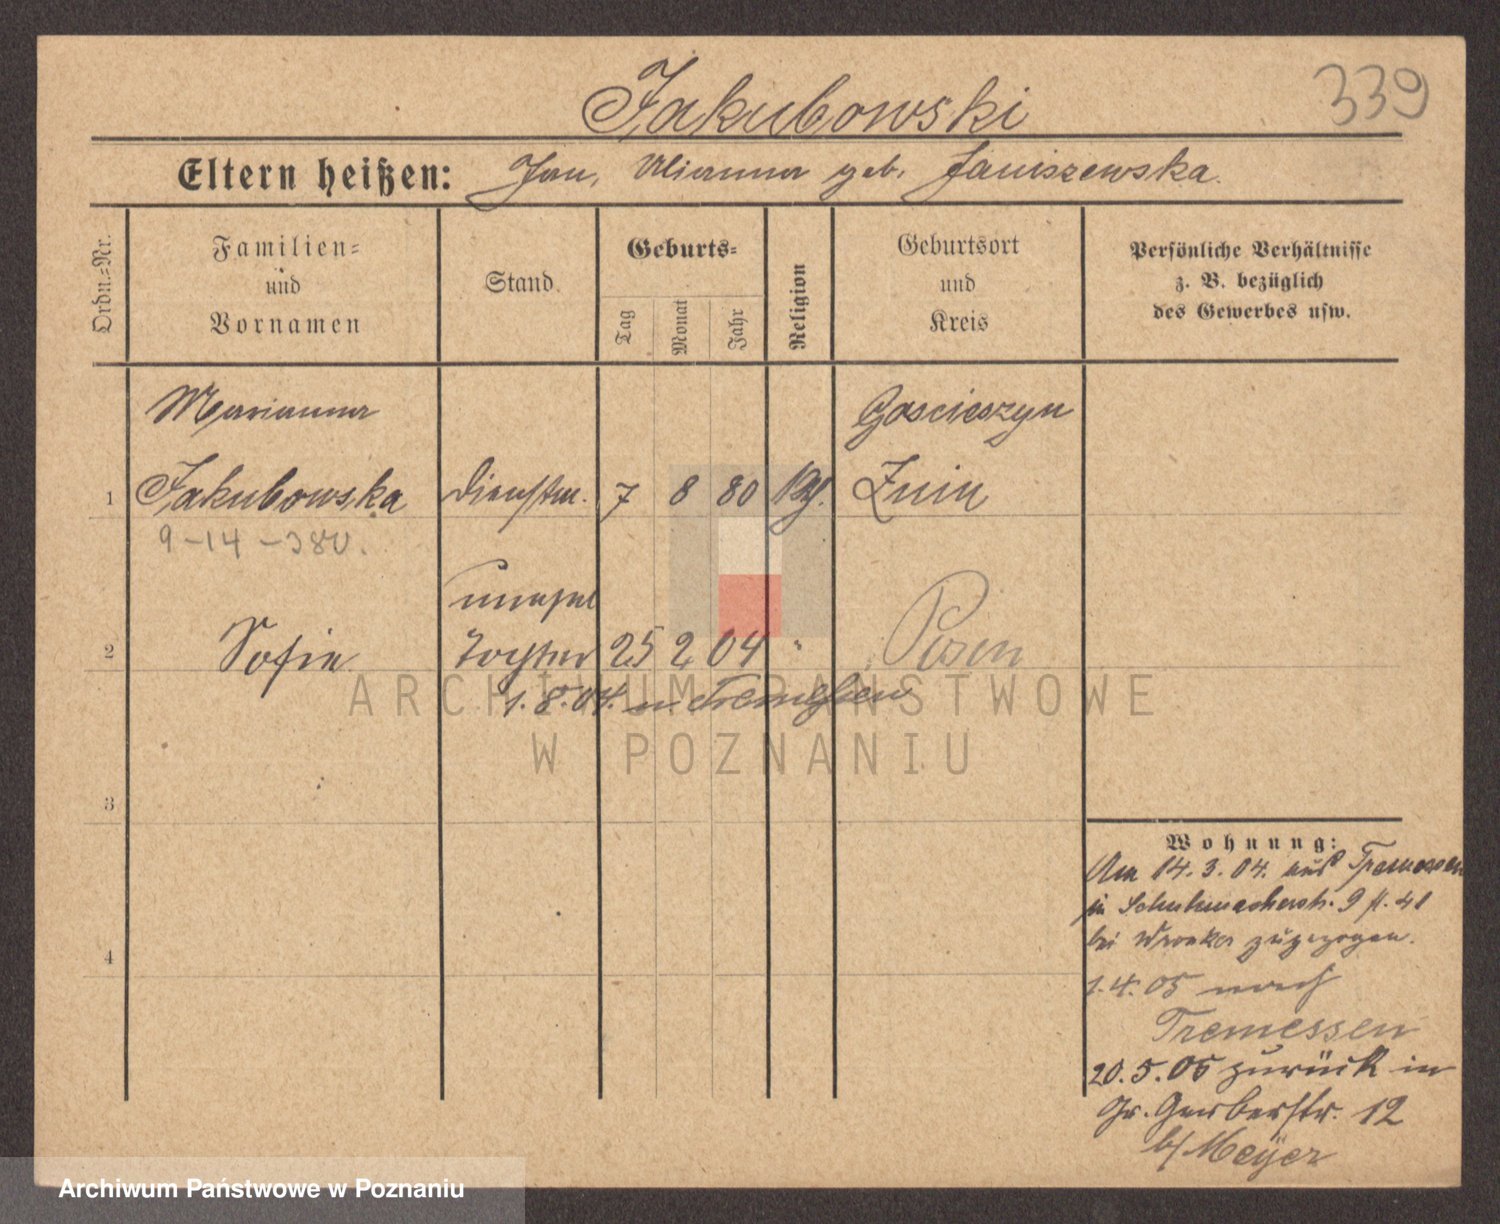 339
Jakubowski
Eltern heißen: Jan, Marianna geb. Janiszewska.
Ordn.=Nr.
Familien=
und
Vornamen
Stand.
Geburts=
Tag
Monat
Jahr
Religion
Geburtsort
und
Kreis
Persönliche Verhältnisse
z. B. bezüglich
des Gewerbes usw.
Marianna
Gościeszyn
1 Jakubowska Dienstm. 7 8 80 Znin
9-14-380.
unehel
2 Sofie Tochter 25 2 04 " Posen
1.8.04. in Tremessen
3
4
Wohnung:
Am 14.3.04. aus Tremessen
in Schuhmacherstr. 9
bei Wronker zugezogen.
1.4.05 nach
Tremessen
20.5.05 zurück in
Gr. Gerberstr. 12
b/Meyer
ARCHIWUM PAŃSTWOWE
W POZNANIU
Archiwum Państwowe w Poznaniu